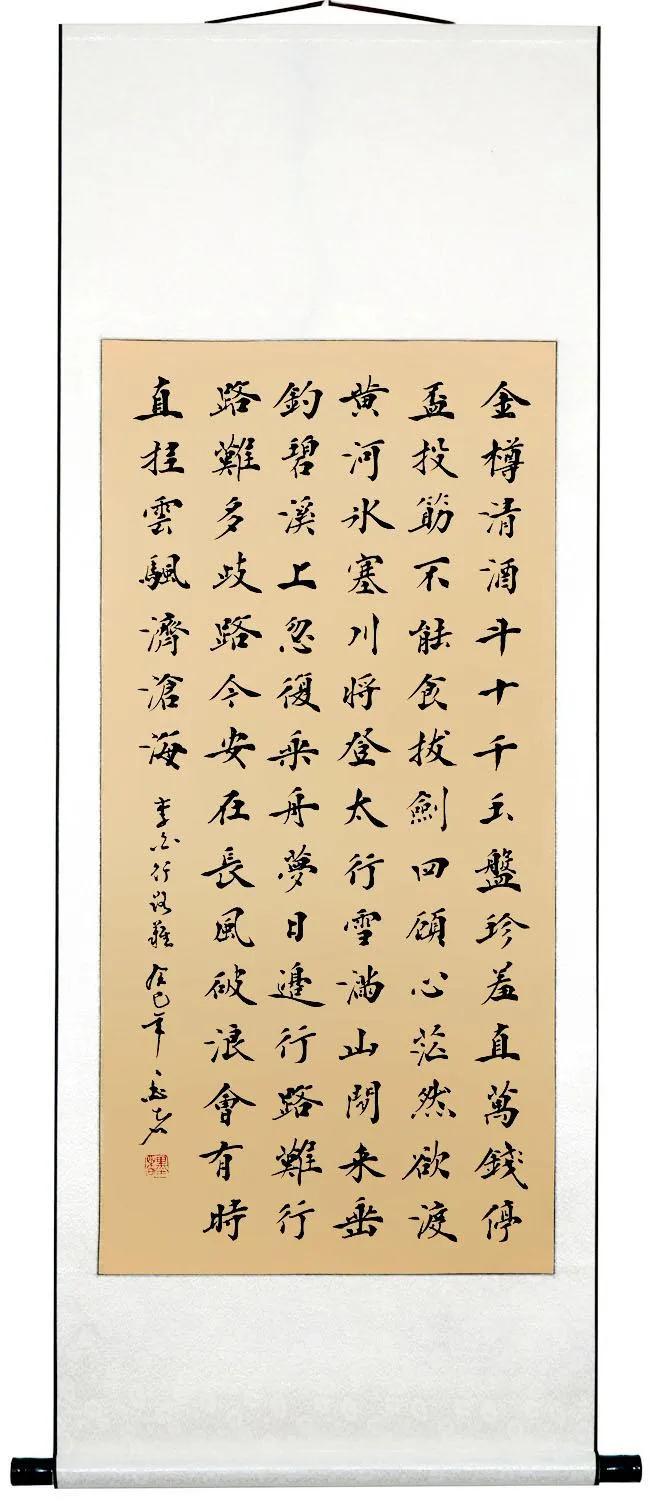 金樽清酒斗十千玉盤珍羞直萬錢停
盃投筯不能食拔劍四顧心茫然欲渡
黄河氷塞川將登太行雪滿山閒来垂
釣碧溪上忽復乗舟夢日邊行路難行
路難多歧路今安在長風破浪會有時
直挂雲颿濟滄海 李白行路難 癸巳年